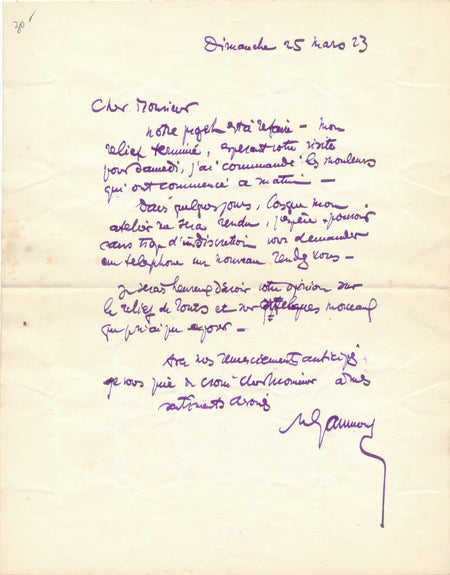 30
Dimanche 25 mars 23
Cher Monsieur
notre projet est à refaire — mon
relief terminé, espérant votre visite
pour samedi, j'ai commandé les mouleurs
qui ont commencé ce matin —
Dans quelques jours, lorsque mon
atelier me sera rendu, j'espère pouvoir
sans trop d'indiscrétion vous demander
au telephone un nouveau rendez vous —
Je serais heureux d'avoir votre opinion sur
le relief de et sur quelques morceaux
que j'ai pu exposer —
Avec mes remerciements anticipés
je vous prie de croire cher Monsieur à mes
sentiments dévoués